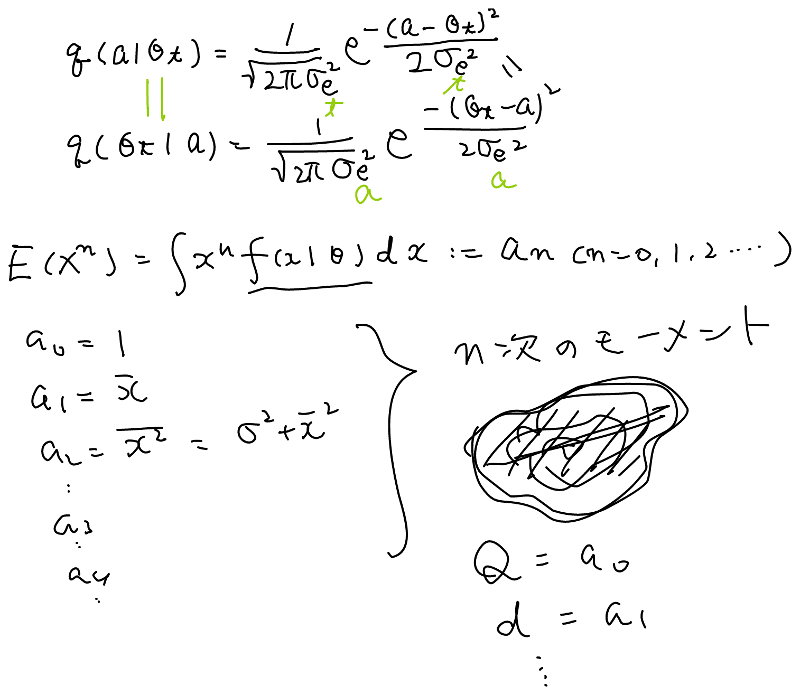 q(a|θt) = 1/√2πσe² e^-(a-θt)²/2σe²
t t
||
q(θt|a) = 1/√2πσe² e^-(θt-a)²/2σe²
a a
E(X^n) = ∫x^n f(x|θ) dx := an (n=0,1,2····)
a₀ = 1
a₁ = x̄
a₂ = \overline{x²} = σ²+x̄²
⋮
a₃
⋮
a₄
⋮
n次のモーメント
Q = a₀
d = a₁
⋮